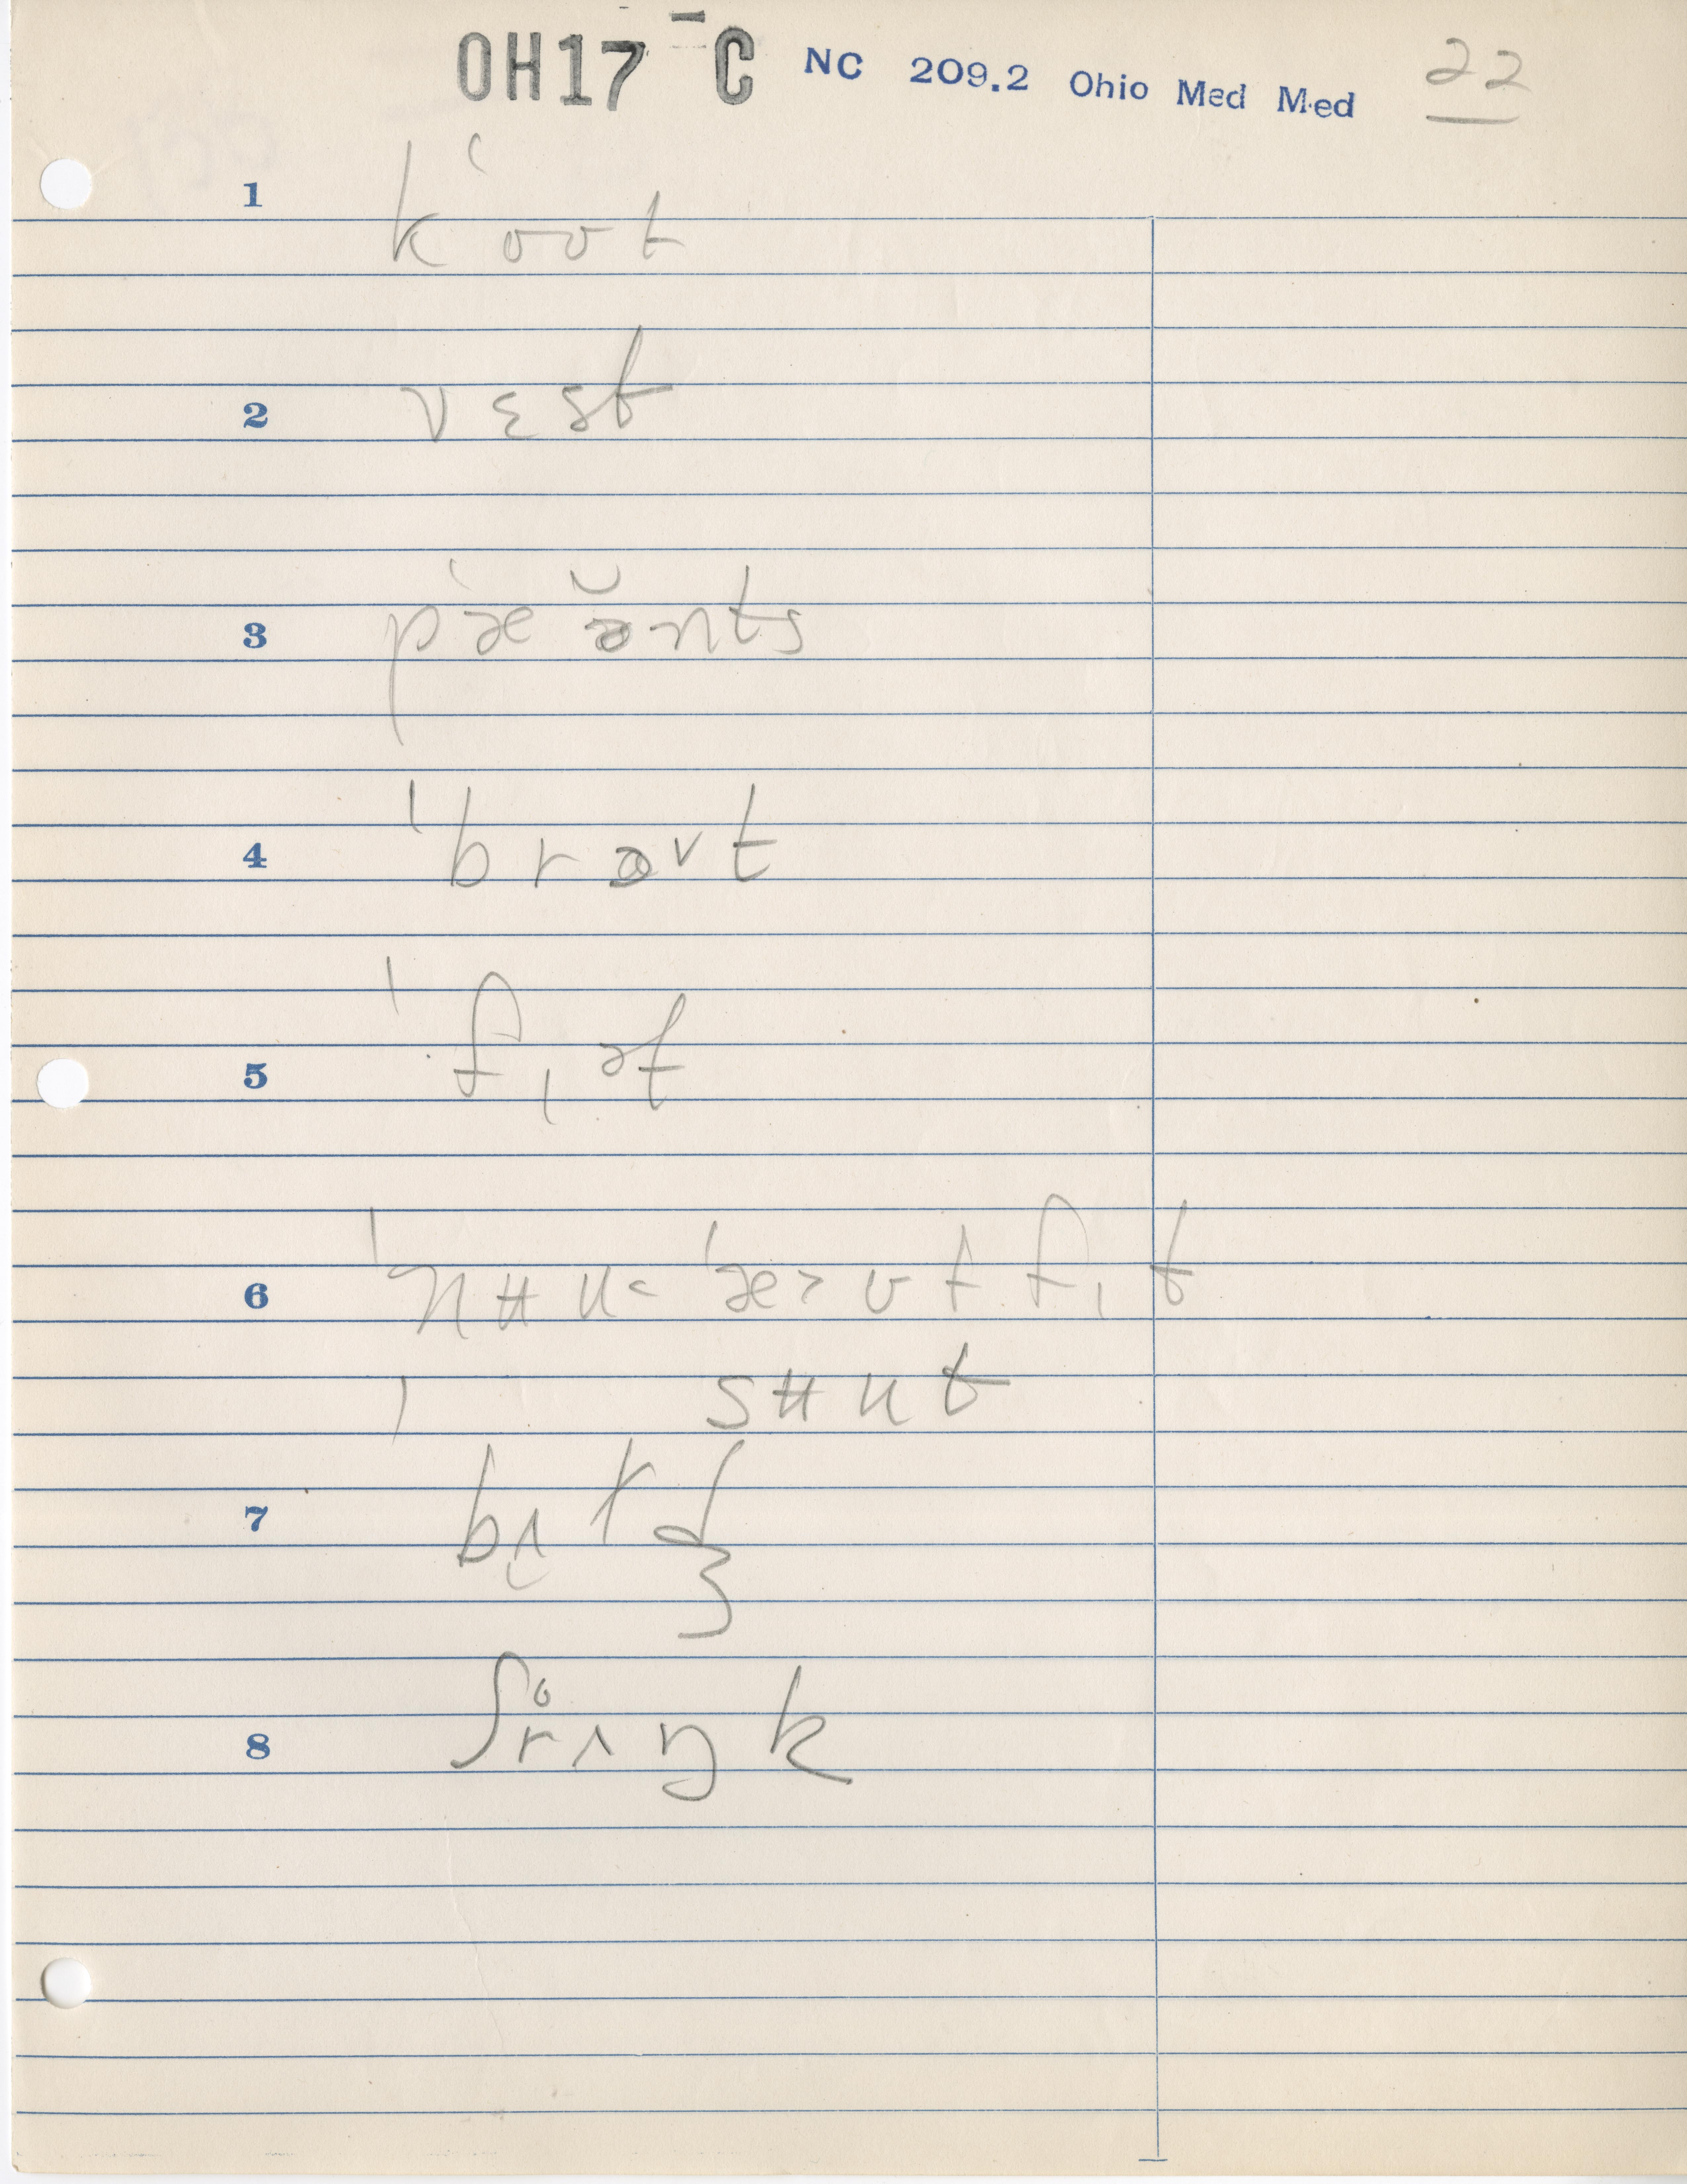 OH17-C NC 209.2 Ohio Med Med 22
1 kʻoʊt
2 vɛst
3 pʻæə̆nts
4 ˈbrɔvt
5 ˈfɪət
6 ˈnʉu˂ ˈæ˃ʊtfɪt
sʉut
7
8 ʃr̊ɪŋk